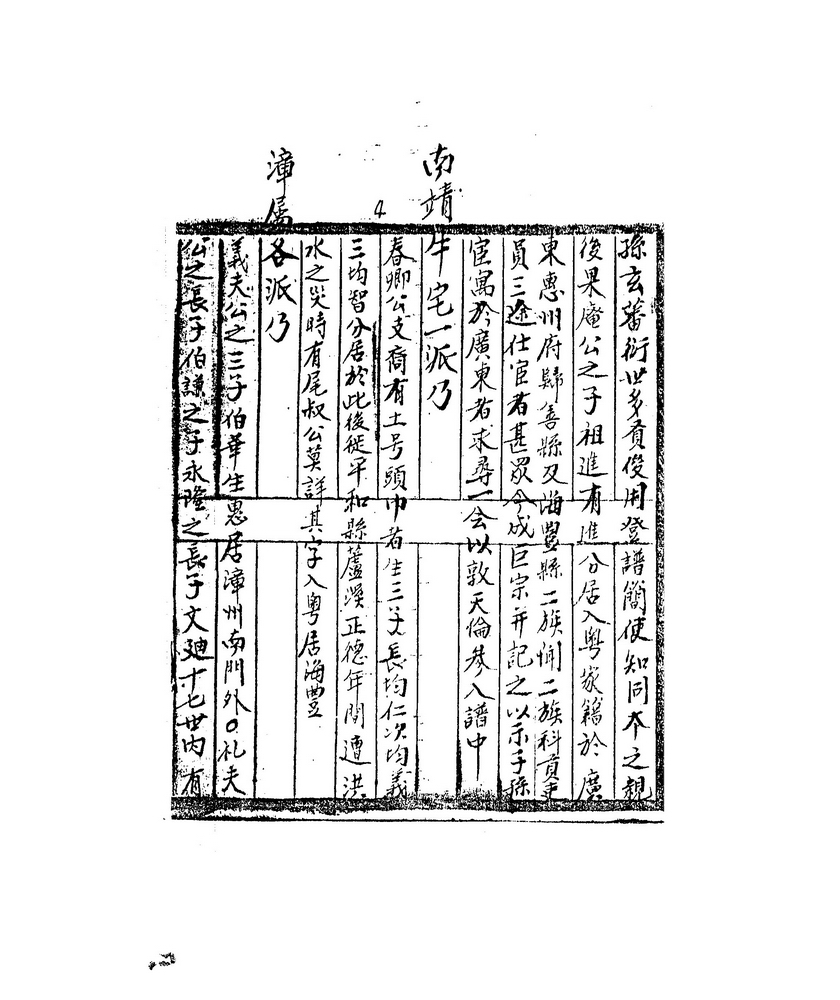 孫玄蕃衍世多貢俊用登譜簡使知同本之親
後果庵公之子祖進有進分居入粵家籍於廣
東惠州府歸善縣及海豐縣二族闻二族科貢吏
員三途仕宦者甚眾今成巨宗并記之以示子孫
宦寓於廣東者求尋一会以敦天倫參入譜中
南靖牛宅一派乃
春卿公支裔有土号頭巾者生三子長均仁次均義
三均智分居於此後徙平和縣蘆溪正德年間遭洪
水之災時有尾叔公莫詳其字入粵居海豐
漳屬各派乃
義夫公之三子伯華生惠居漳州南門外○礼夫
公之長子伯謙之子永隆之長子文廸十七世內有
4